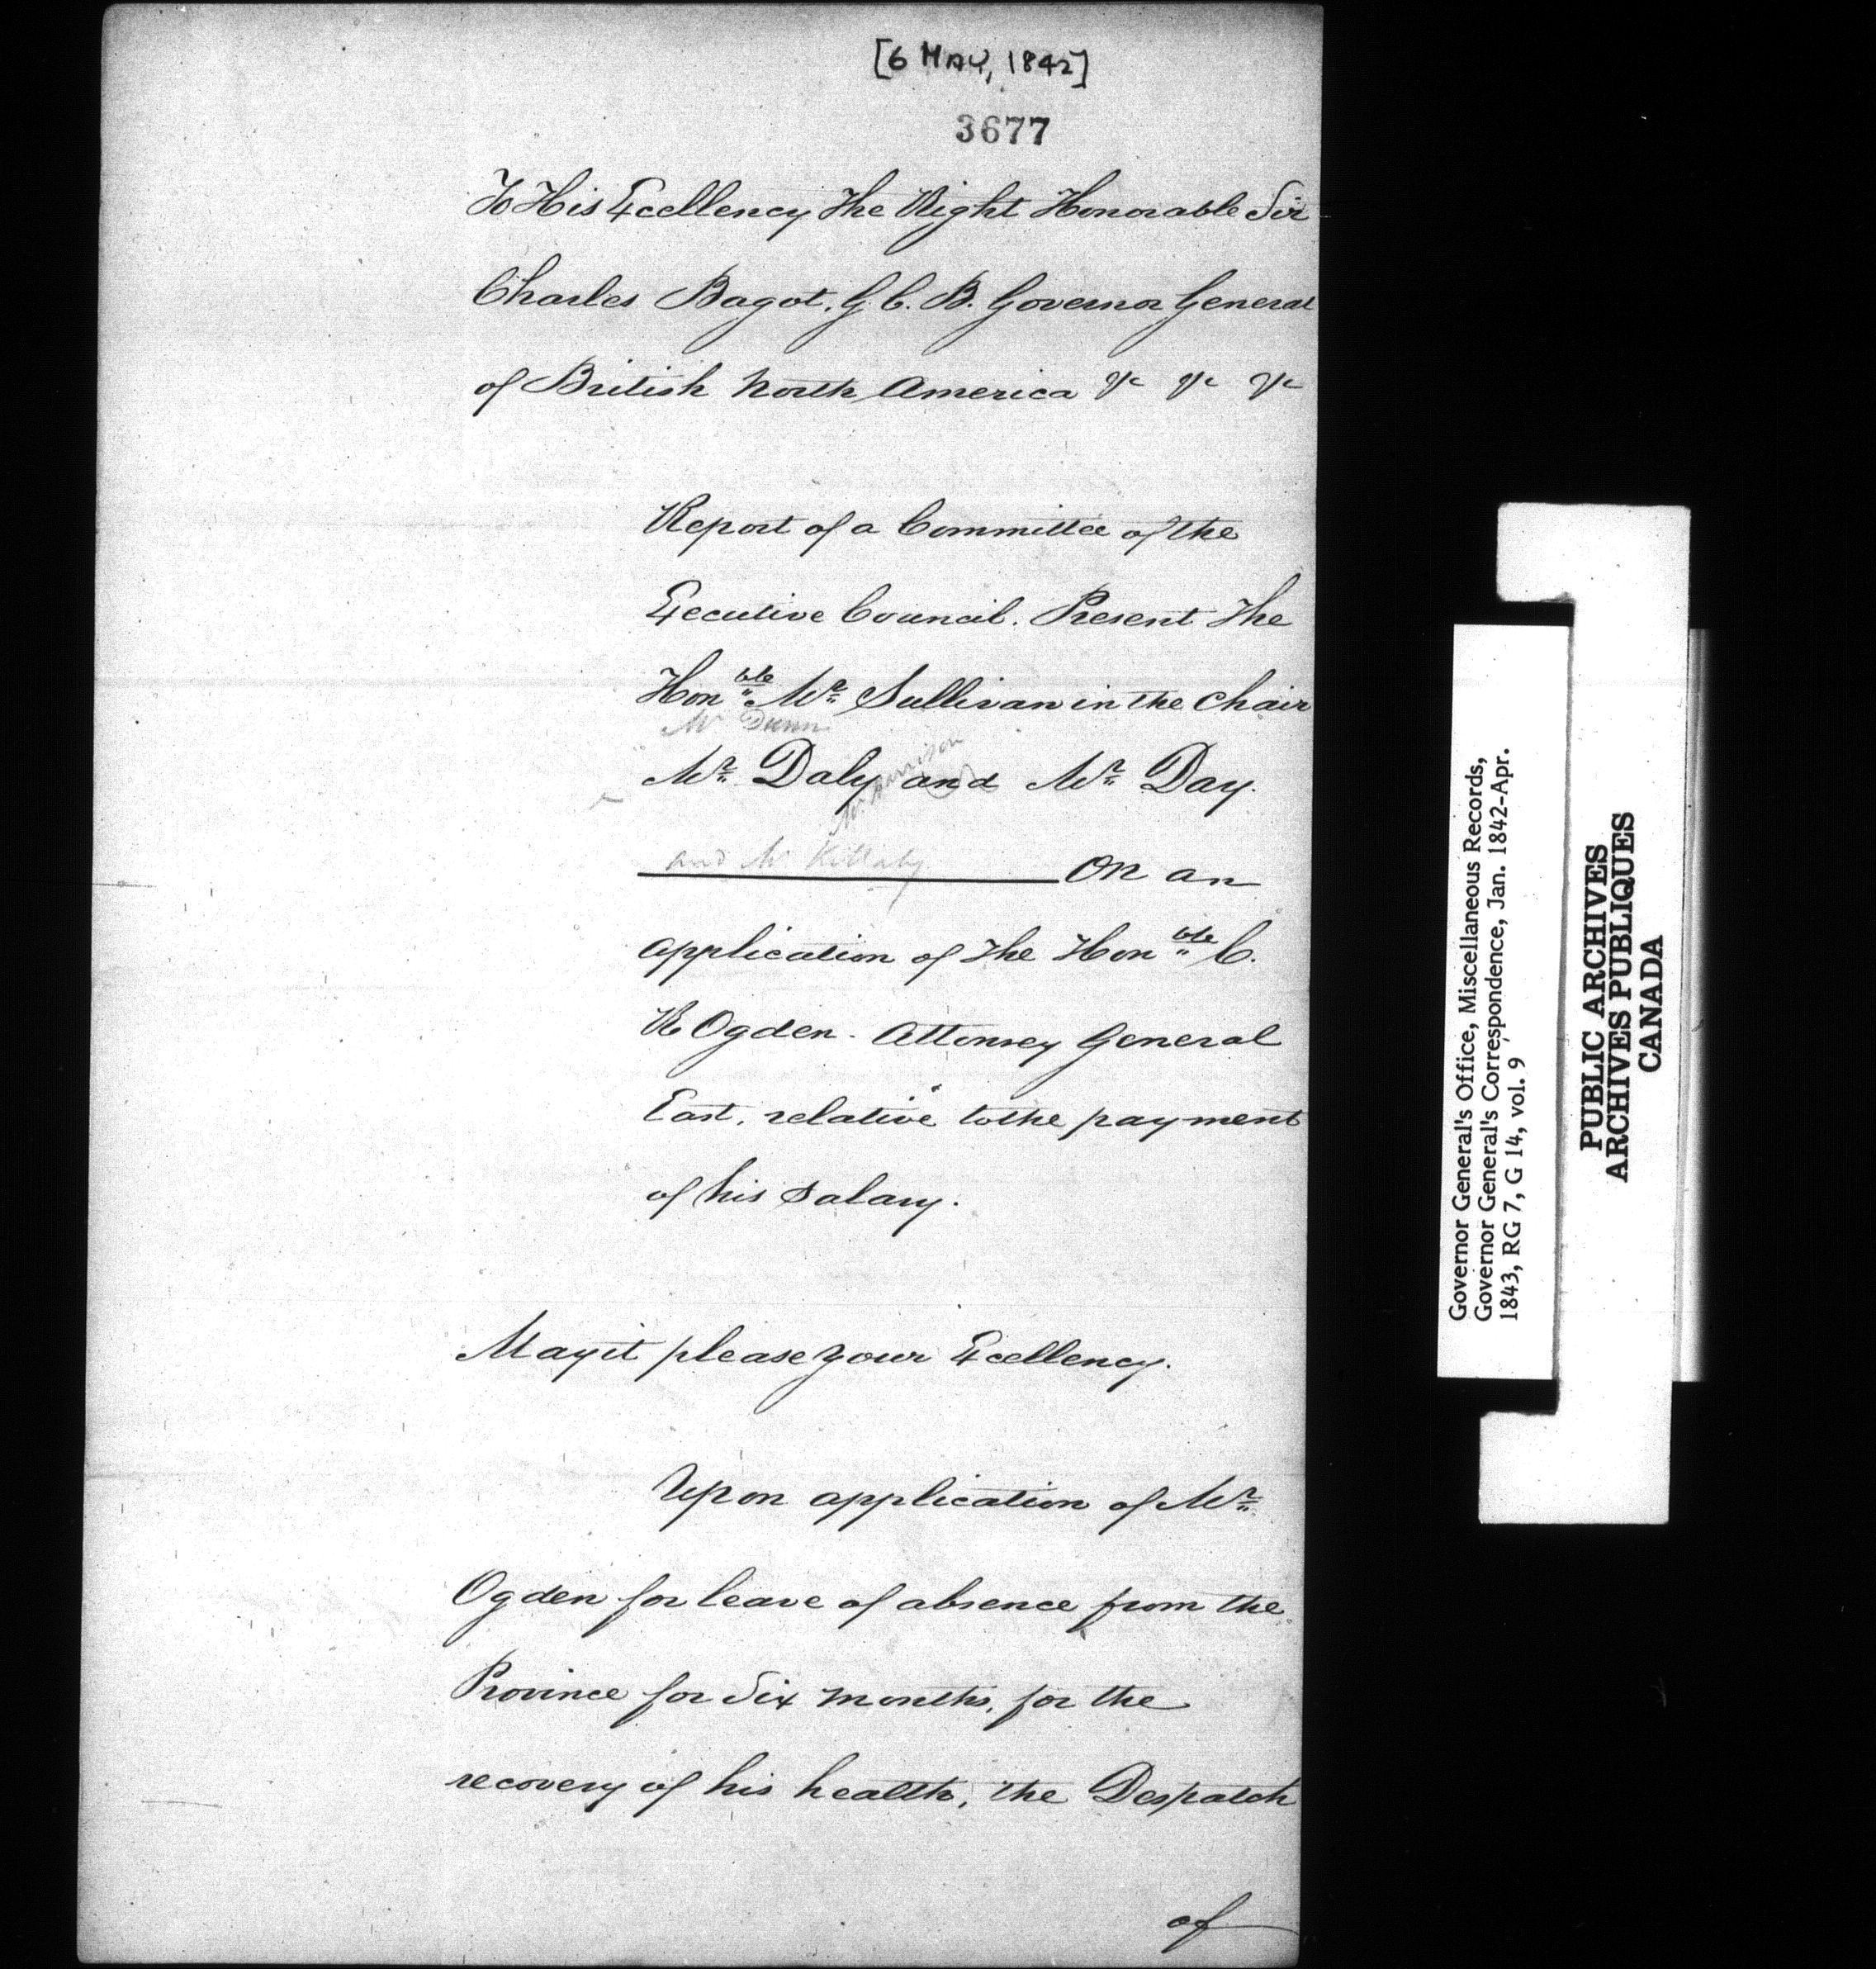 [6 MAY, 1842]
3677
To His Excellency The Right Honorable Sir
Charles Bagot, G.C.B. Governor General
of British North America &c &c &c
Report of a Committee of the
Executive Council. Present The
Honble Mr Sullivan in the Chair
Mr Dunn
Mr Daly and Mr Day.
Mr Harrison
and Mr Killaly
On an
application of The Honble C.
R Ogden. Attorney General
East, relative to the payment
of his Salary.
May it please Your Excellency.
Upon application of Mr
Ogden for leave of absence from the
Province for Six months, for the
recovery of his health, the Despatch
of
Governor General's Office, Miscellaneous Records,
Governor General's Correspondence, Jan. 1842-Apr.
1843, RG 7, G 14, vol. 9
PUBLIC ARCHIVES
ARCHIVES PUBLIQUES
CANADA